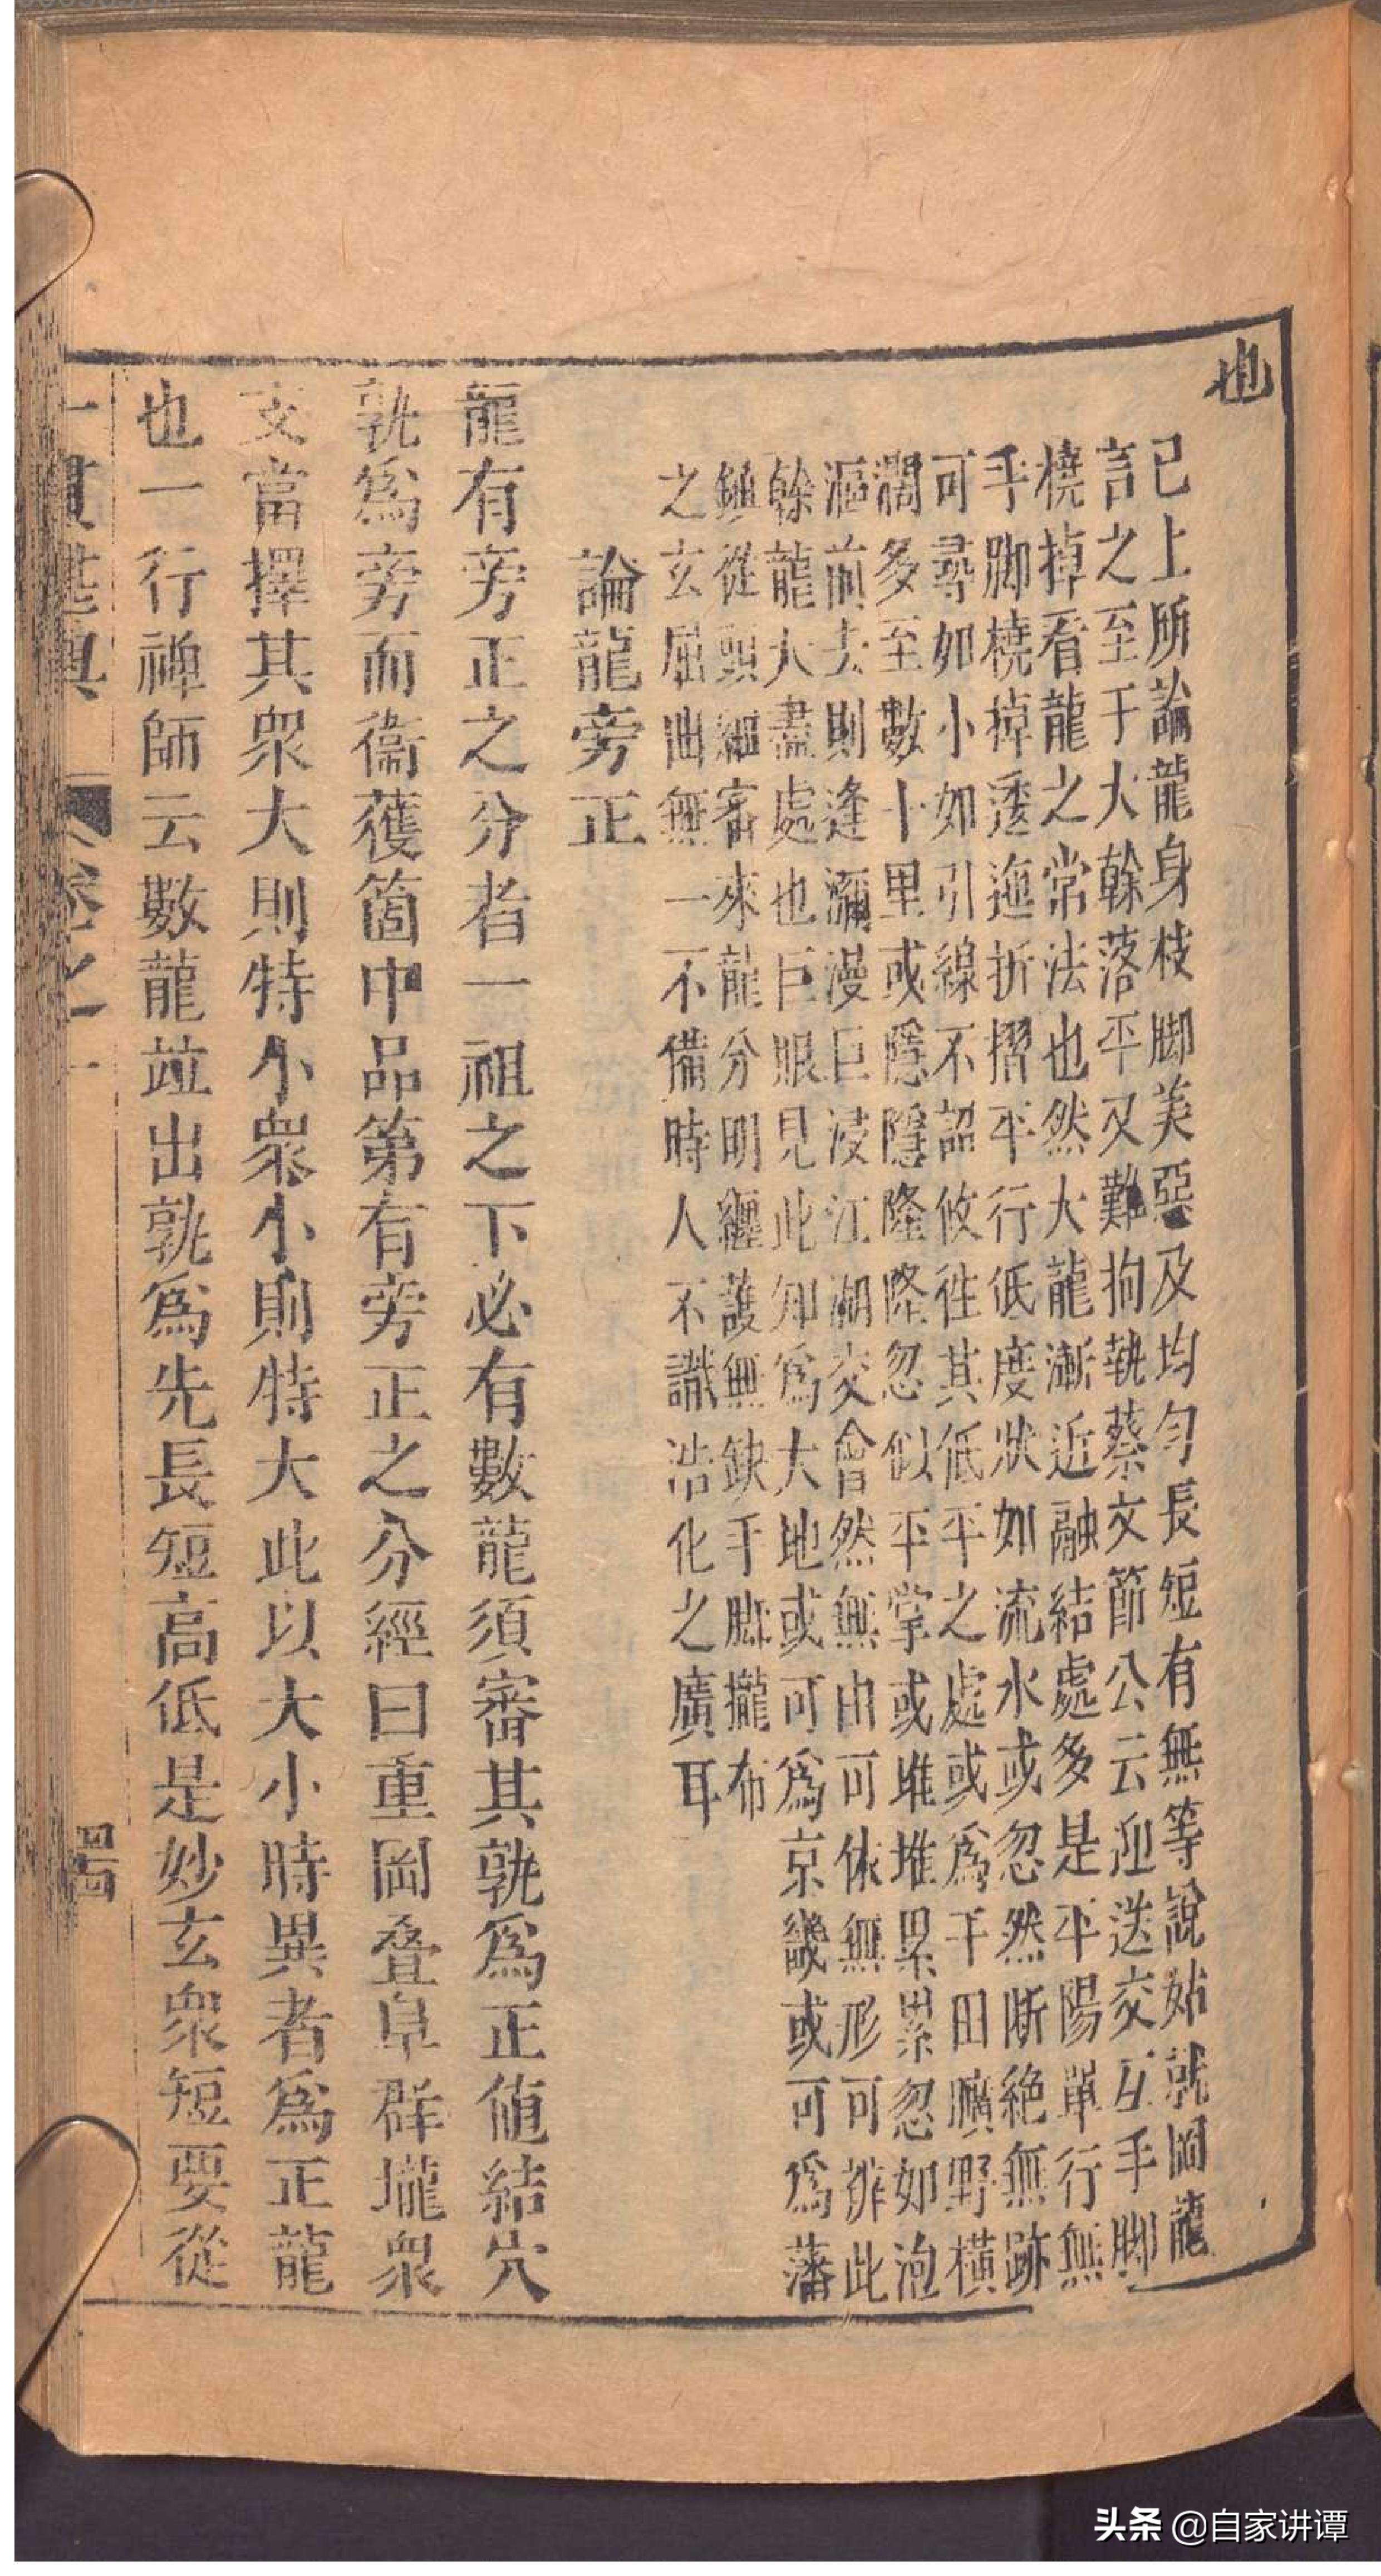 也
已上所論龍身枝脚美惡及均勻長短有無等說姑就岡龍
言之至于大幹落平又難拘執蔡文節公云迎送交互手脚
橈掉看龍之常法也然大龍漸近融結處多是平陽單行無
手脚橈掉逶迤折摺平行低度狀如流水或忽然斷絶無跡
可尋如小如引線不詔攸徃其低平之處或爲干田曠野橫
濶多至數十里或隱隱隆隆忽似平掌或堆堆累累忽如泡
漚前去則逢瀰漫巨浸江湖交會然無由可依無形可推此
幹龍大盡處也巨眼見此知爲大地或可爲京畿或可爲藩
鎮從頭細審來龍分明纏護無缺手脚攏布
之玄屈曲無一不備時人不識浩化之廣耳
論龍旁正
龍有旁正之分者一祖之下必有數龍須審其孰爲正値結穴
孰爲旁而衞䕶箇中品第有旁正之分經曰重岡叠阜群壠衆
支當擇其衆大則特小衆小則特大此以大小時異者爲正龍
也一行禅師云數龍竝出孰爲先長短高低是妙玄衆短要從
一貫堪輿 卷之一
頭条 @自家讲谭